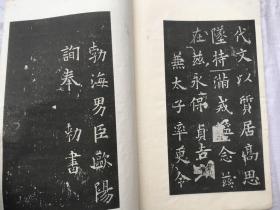 代文以質居高思
墜持滿戒溢念兹
在兹永保貞吉
兼太子率更令
勃海男臣歐陽
詢奉 勅書